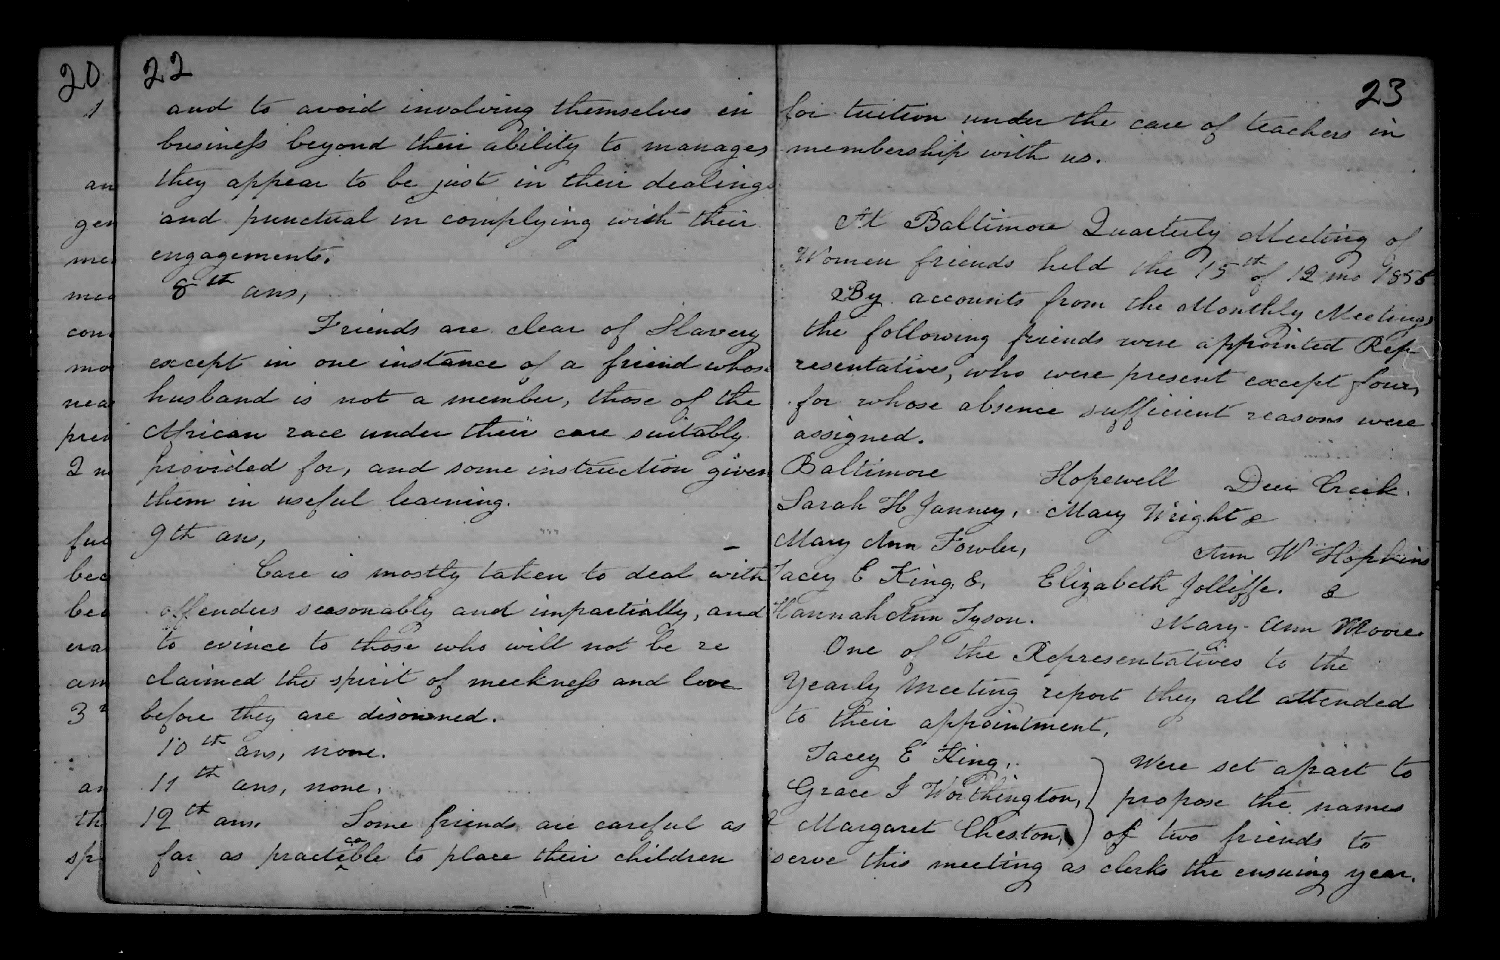 20
1
an
gen
me
mee
com
mo
nea
pres
2 n
ful
bee
bee
era
am
3
an
th
sp
22
and to avoid involving themselves in
business beyond their ability to manage,
they appear to be just in their dealings
and punctual in complying with their
engagements.
8th ans,
Friends are clear of Slavery
except in one instance of a friend whose
husband is not a member, those of the
African race under their care suitably
provided for, and some instruction given
them in useful learning.
9th ans,
Care is mostly taken to deal with
offenders seasonably and impartially, and
to evince to those who will not be re
claimed the spirit of meekness and love
before they are disowned.
10th ans, none.
11th ans, none.
12th ans. Some friends are careful as
far as practicable to place their children
23
for tuition under the care of teachers in
membership with us.
At Baltimore Quarterly Meeting of
Women friends held the 15th of 12 mo 185
By accounts from the Monthly Meetings
the following friends were appointed Rep
resentatives, who were present except four,
for whose absence sufficient reasons were
assigned.
Baltimore Hopewell Deer Creek.
Sarah H Janney, Mary Wright &
Mary Ann Fowler, Ann W Hopkins
Tacey E King, &, Elizabeth Jolliffe. &
Hannah Ann Tyson. Mary Ann Moore.
One of the Representatives to the
Yearly Meeting report they all attended
to their appointment,
Tacey E King, Were set apart to
Grace I Worthington, propose the names
& Margaret Cheston, of two friends to
serve this meeting as clerks the ensuing year.